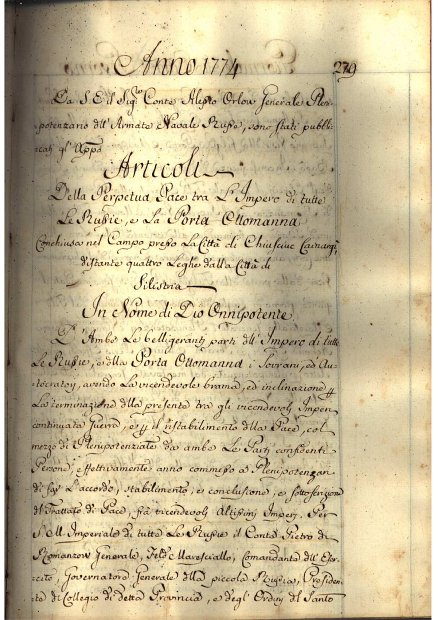 Anno 1774
279
Da S. E. il Sigr. Conte Alesio Orlow Generale Plen-
ipotenziario dell' Armata Navale Russa, sono stati pubbli-
cati gl'
Articoli
Della Perpetua Pace tra L'Impero di tutte
Le Russie, e La Porta Ottomanna
Conchiusa nel Campo presso La Città di Chiusciuc Cainargi,
distante quattro Leghe dalla Città di
Silistria
In Nome di Dio Onnipotente.
D'Ambo Le belligeranti parti dell' Impero di tutte
Le Russie, e della Porta Ottomanna i Sovrani, ed Au-
tocratori, avendo La vicendevole brama, ed inclinazione
La terminazione della presente tra gli vicendevoli Imperi
Continuata Guerra, e il ristabilimento della Pace, col
mezzo di Plenipotenziate da ambe Le Parti confidenti
Persone, effettivamente anno commesso a Plenipotenziari
di far L'accordo, stabilimento, e conclusione, e sottoscrizione
del Trattato di Pace, frà vicendevoli Altissimi Imperj. Per
S. M. Imperiale di tutte Le Russie il Conte Pietro di
Romanzow Generale, Feld Maresciallo, Comandante dell' Eser-
cito, Governatore Generale della piccola Russia, Presiden-
te di Collegio di detta Provincia, e degl' Ordini del Santo